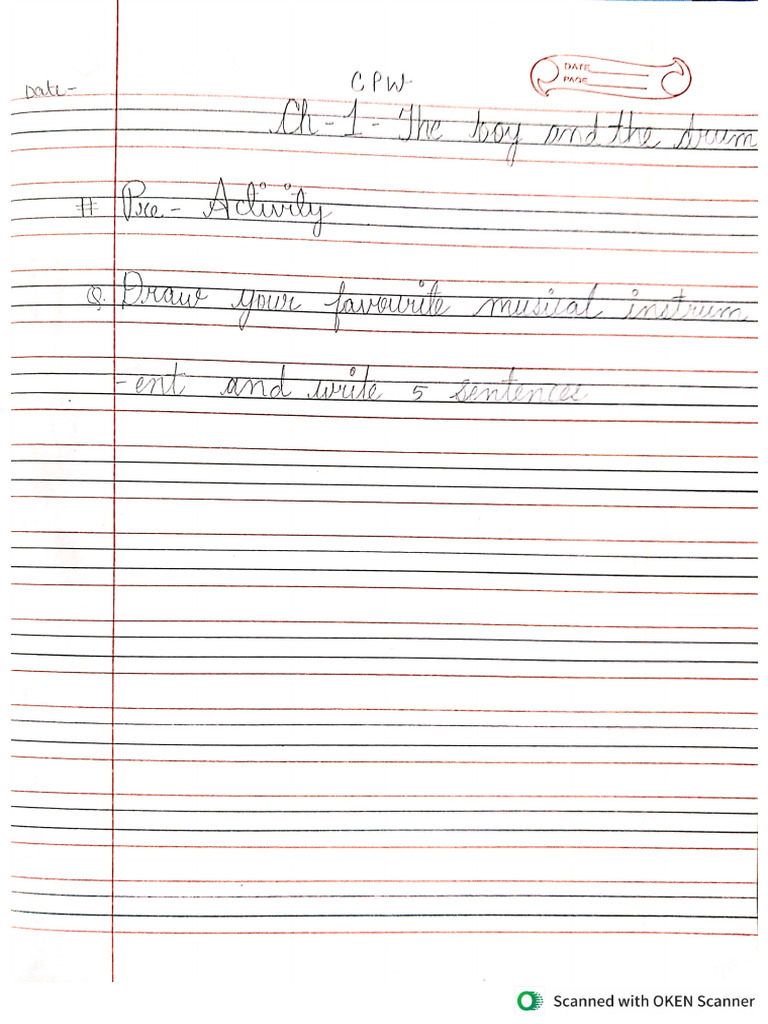 CPW
DATE
PAGE
Date-
Ch-1- The boy and the drum
# Pre- Activity
Q. Draw your favourite musical instrum
-ent and write 5 sentences
Scanned with OKEN Scanner